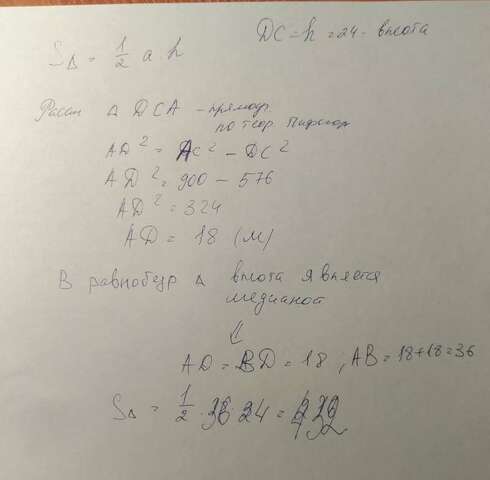 DC = h = 24 - высота
S△ = 1/2 a h
Рассм △ DCA - прямоуг
по теор. Пифагор
AD² = AC² - DC²
AD² = 900 - 576
AD² = 324
AD = 18 (м)
В равнобедр △ высота является
медианой
⇓
AD = BD = 18, AB = 18+18=36
S△ = 1/2 · 36 · 24 = 432